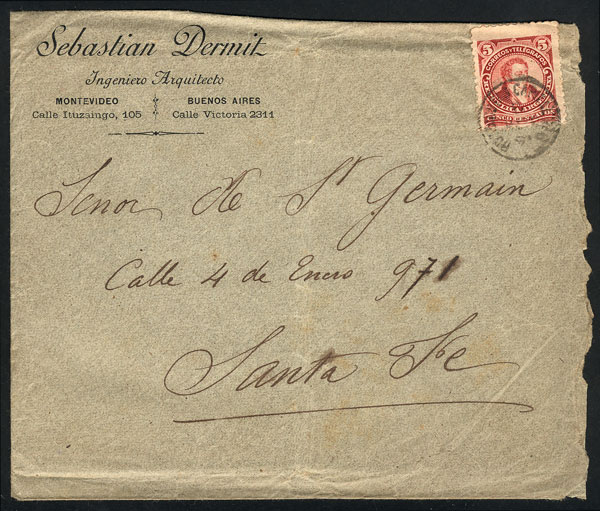 Sebastian Dermit
Ingeniero Arquitecto
MONTEVIDEO BUENOS AIRES
Calle Ituzaingo, 105 Calle Victoria 2311
5 5
CORREOS Y TELEGRAFOS
CINCO CENTAVOS
Senor De St Germain
Calle 4 de Enero 971
Santa Fe